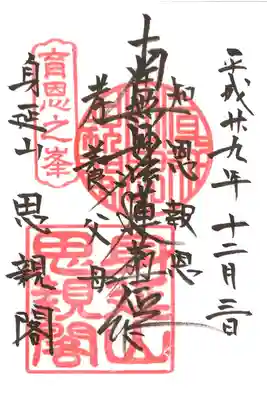 平成廿九年十二月三日
知恩報恩
南無妙法蓮華経
孝養父母
育恩之峯
身延山 思親閣
身延山
思親閣